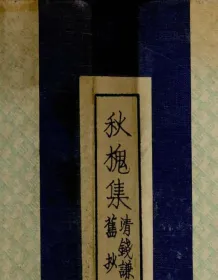 秋槐集
清錢謙
舊抄